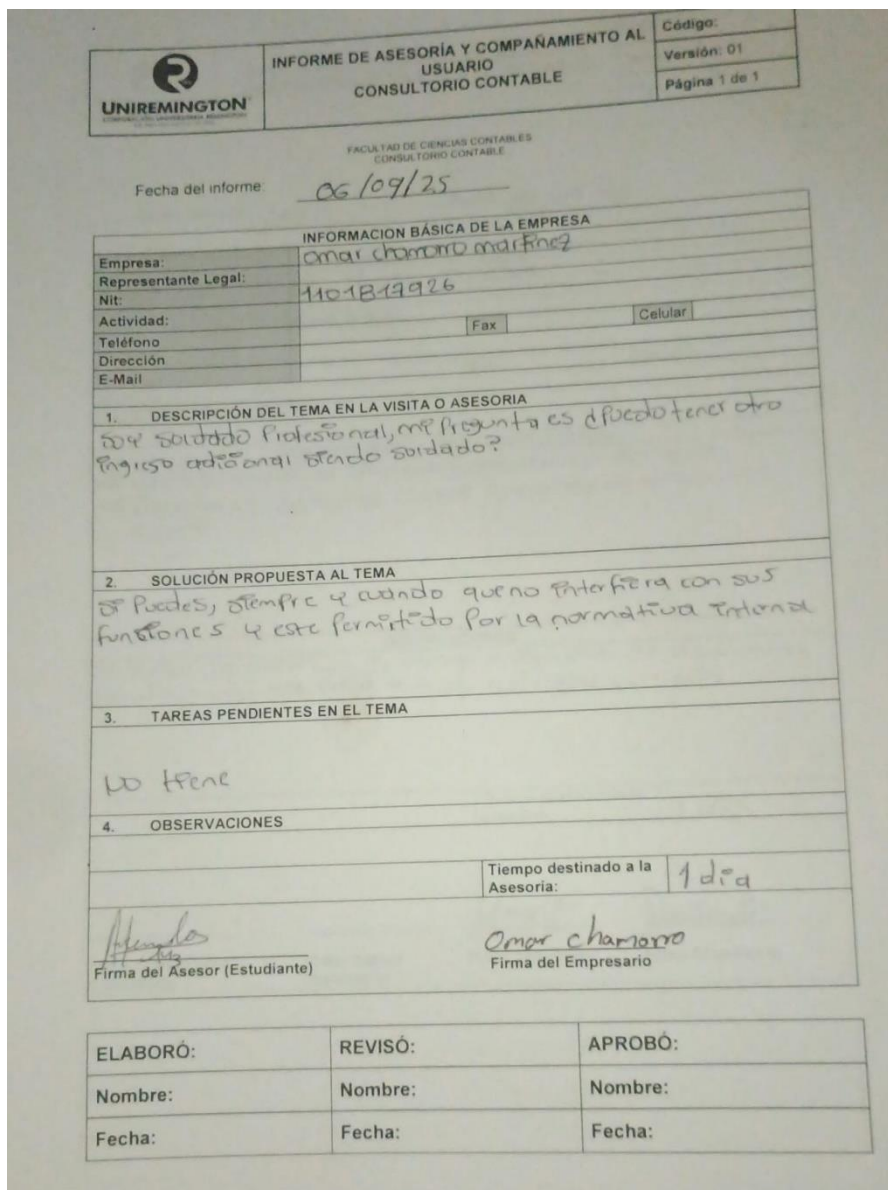 UNIREMINGTON
INFORME DE ASESORÍA Y COMPAÑAMIENTO AL
USUARIO
CONSULTORIO CONTABLE
Código:
Versión: 01
Página 1 de 1
FACULTAD DE CIENCIAS CONTABLES
CONSULTORIO CONTABLE
Fecha del informe: 06/09/25
INFORMACION BÁSICA DE LA EMPRESA
Empresa: Omar chamorro martinez
Representante Legal:
Nit: 1101817926
Actividad:
Teléfono Fax Celular
Dirección
E-Mail
1. DESCRIPCIÓN DEL TEMA EN LA VISITA O ASESORIA
soy soldado Profesional, mi Pregunta es ¿Puedo tener otro
ingreso adisional siendo soldado?
2. SOLUCIÓN PROPUESTA AL TEMA
si Puedes, siempre y cuando que no interfiera con sus
funsiones y este Permitido Por la normativa interna
3. TAREAS PENDIENTES EN EL TEMA
No tiene
4. OBSERVACIONES
Tiempo destinado a la
Asesoria: 1 dia
Omar chamorro
Firma del Asesor (Estudiante) Firma del Empresario
ELABORÓ: REVISÓ: APROBÓ:
Nombre: Nombre: Nombre:
Fecha: Fecha: Fecha: